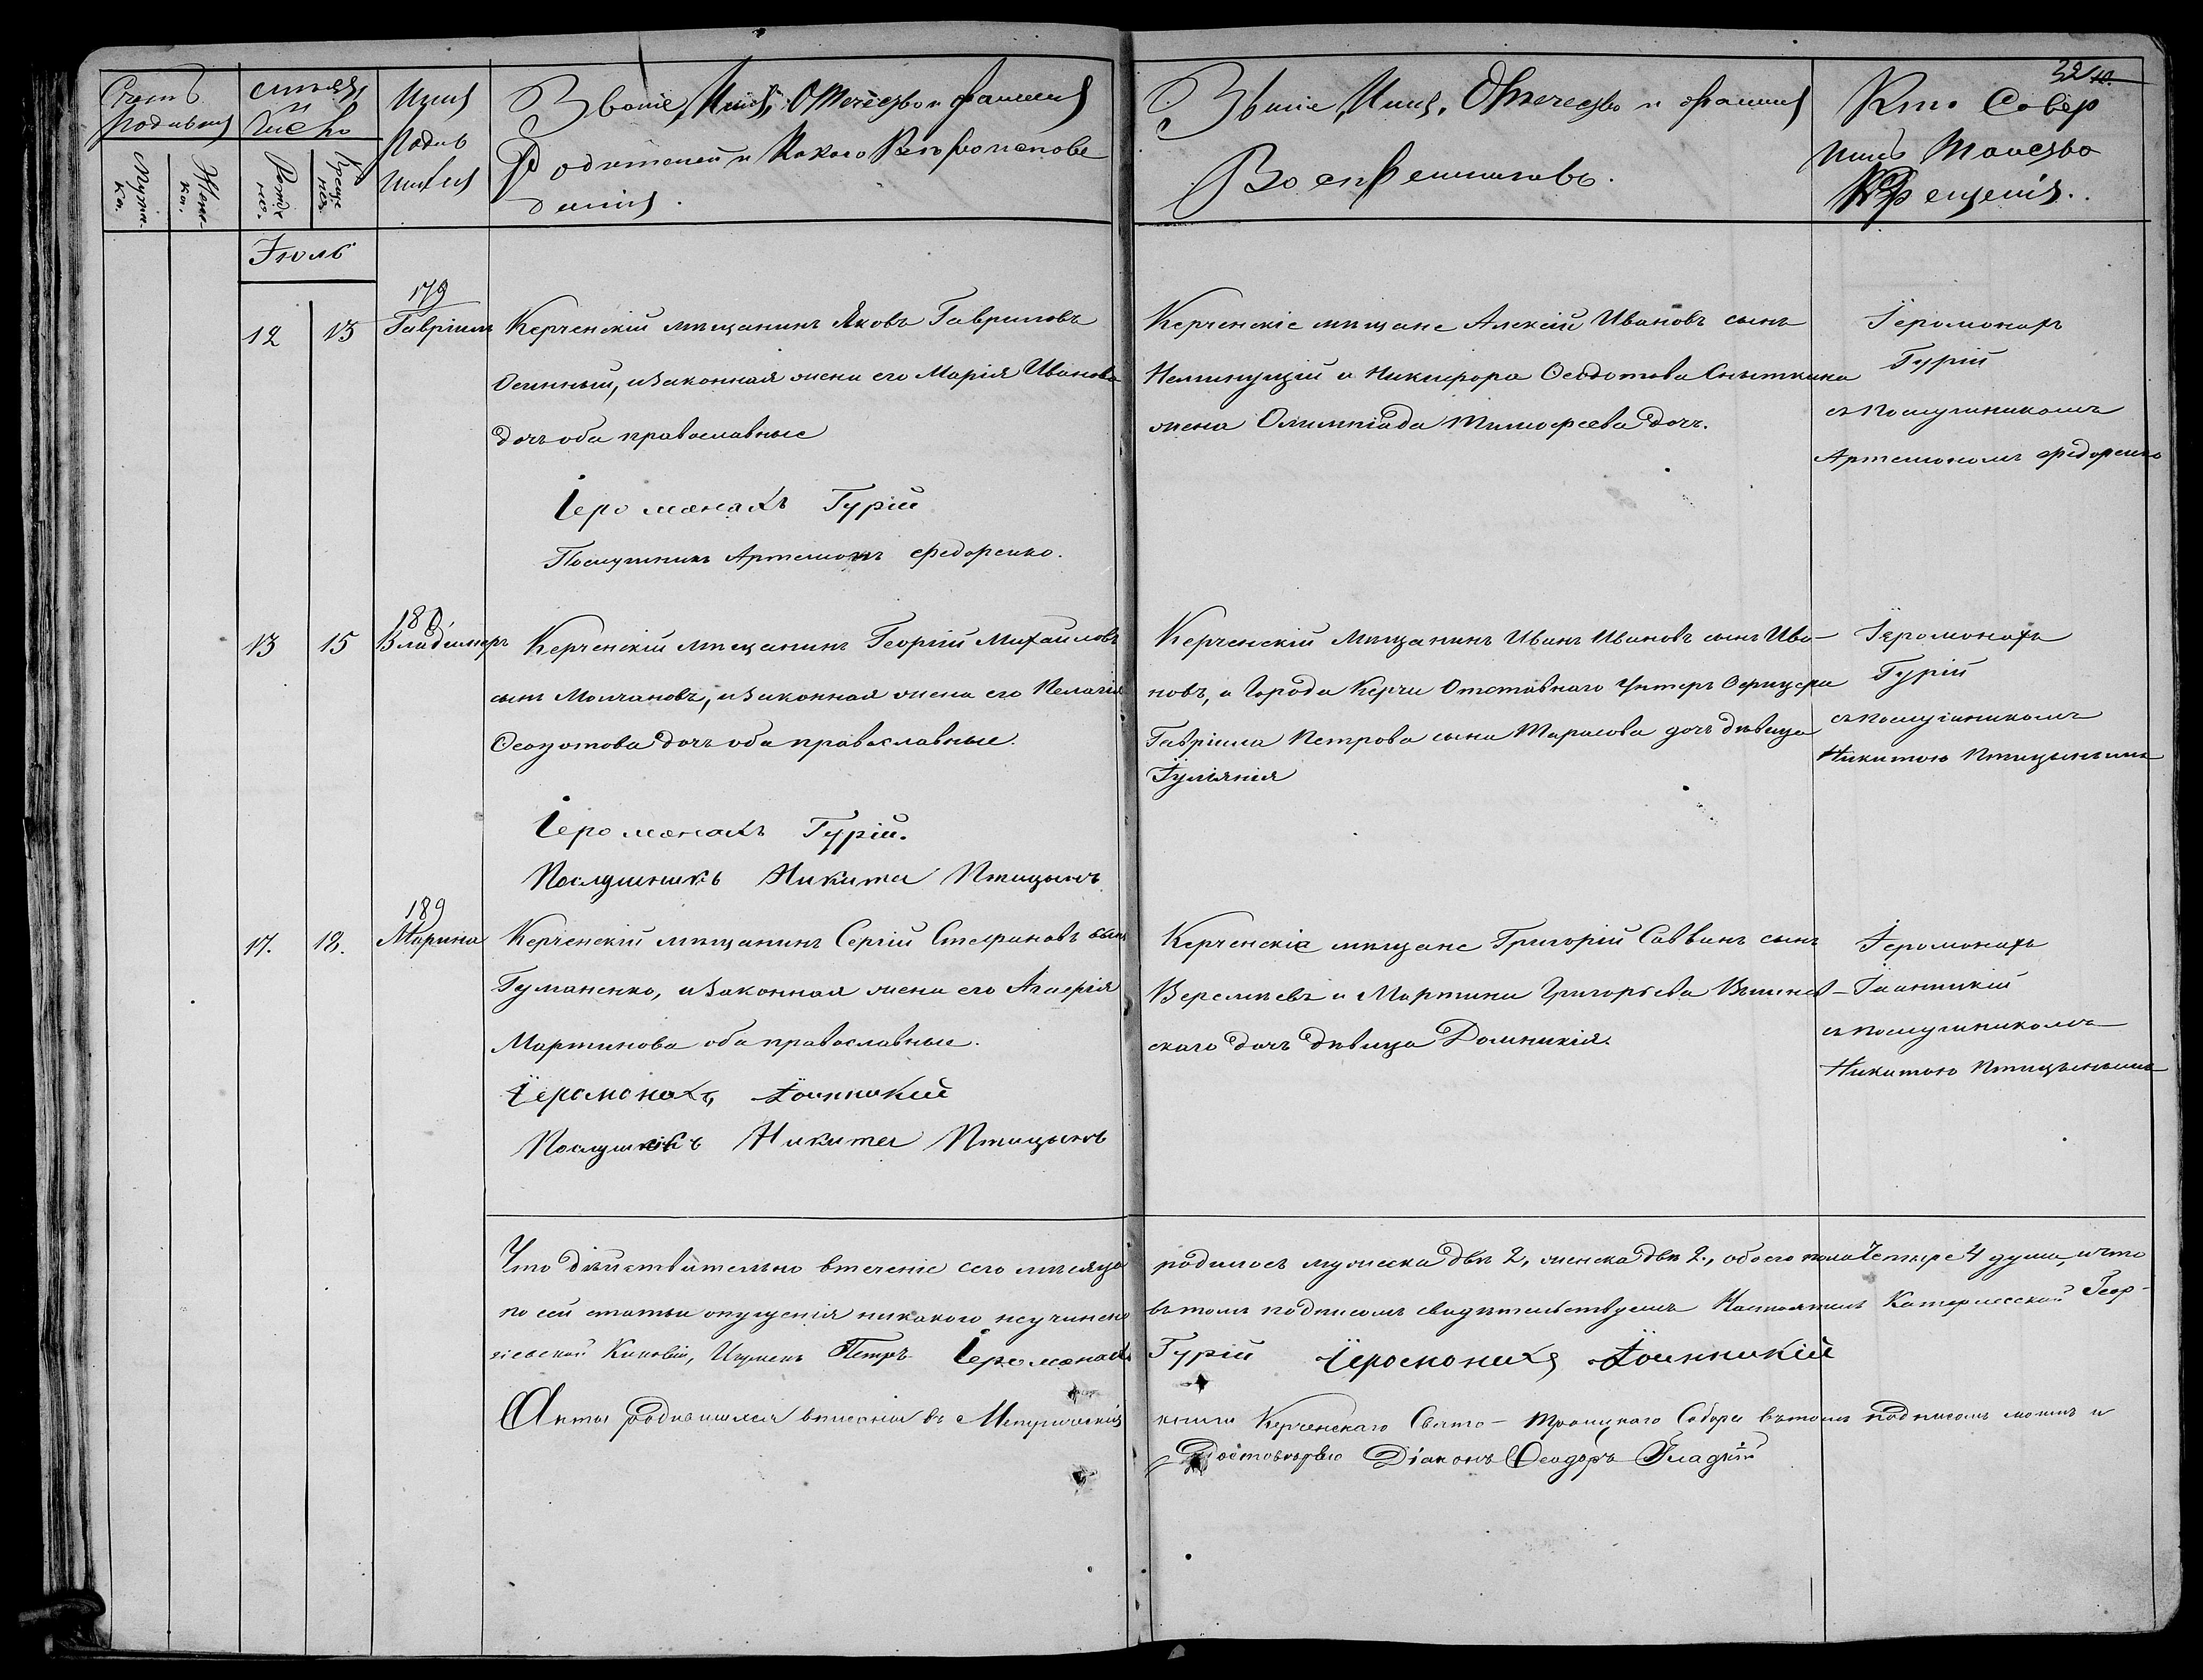 32
Счетъ родившихся
Мужеска.
Женска.
мѣсяцъ и Число
Рожденiя.
Крещенiя.
Имена Родившихся
Званiе, Имя, Отчество и фамилiя
Родителей и Какого Вѣроисповѣ
данiя.
Званiе, Имя, Отчество и фамилiя
Воспрiемниковъ.
Кто Совер
шилъ Таинство
Крещенiя.
Iюль
179
12
13
Гаврiилъ
Керченскiй мѣщанинъ Яковъ Гавриловъ
Осинный, и законная жена его Марiя Иванова
дочь оба православные
Iеромонахъ Гурiй
Послушникъ Артемонъ Федоренко.
Керченскiе мѣщане Алексѣй Ивановъ сынъ
Неминущiй и Никифора Ѳеодотова Сныткина
жена Олимпiада Тимофеева дочь.
Iеромонахъ
Гурiй
съ послушникомъ
Артемономъ Федоренко
180
13
15
Владимиръ
Керченскiй мѣщанинъ Георгiй Михайловъ
сынъ Молчановъ, и законная жена его Пелагiя
Ѳеодотова дочь оба православные.
Iеромонахъ Гурiй.
Послушникъ Никита Птицынъ
Керченскiй Мѣщанинъ Иванъ Ивановъ сынъ Ива-
новъ, и Города Керчи Отставнаго Унтеръ Офицера
Гаврiила Петрова сына Тарасова дочь дѣвица
Iулiянiя
Iеромонахъ
Гурiй
съ послушникомъ
Никитою Птицынымъ
189
17.
18.
Марина
Керченскiй мѣщанинъ Сергiй Стефановъ сынъ
Гуманенко, и законная жена его Агафiя
Мартинова оба православные.
Iеромонахъ Iоанникiй
Послушникъ Никита Птицынъ
Керченскiе мѣщане Григорiй Саввинъ сынъ
Веремѣевъ и Мартина Григорьева Вишнев-
скаго дочь дѣвица Домникiя.
Iеромонахъ
Iоанникiй
съ послушникомъ
Никитою Птицынымъ
Что дѣйствительно втеченiе сего мѣсяца родилось мужеска двѣ 2, женска двѣ 2., обоего пола Четыре 4 души, и что
по сей статьи опущенiя никакого неучинено вътомъ подписомъ свидѣтельствуемъ Настоятель Катерлесской Геор-
гiевской Киновiи, Игуменъ Петръ Iеромонахъ Гурiй Iеромонахъ Iоанникiй
Акты родившихся вписаны въ Метрическiя книги Керченскаго Свято-Троицкаго Собора вътомъ подписомъ моимъ и
Достовѣряю Дiаконъ Ѳеодоръ Гладкiй